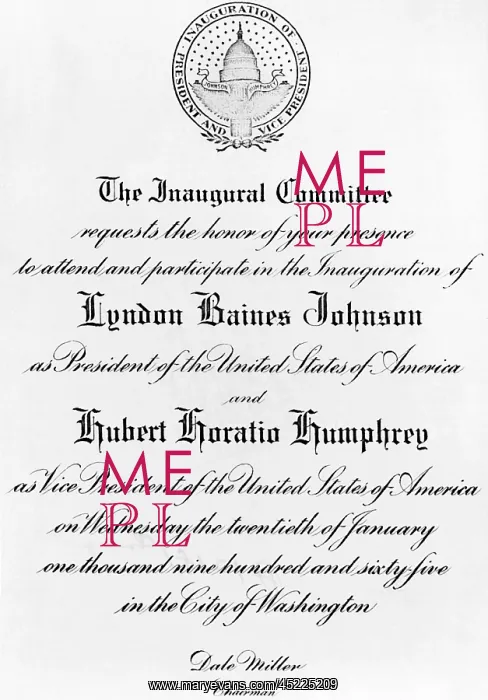 INAUGURATION OF
PRESIDENT AND VICE PRESIDENT
JOHNSON HUMPHREY
The Inaugural Committee
requests the honor of your presence
to attend and participate in the Inauguration of
Lyndon Baines Johnson
as President of the United States of America
and
Hubert Horatio Humphrey
as Vice President of the United States of America
on Wednesday the twentieth of January
one thousand nine hundred and sixty-five
in the City of Washington
Dale Miller
Chairman
ME
PL
ME
PL
www.maryevans.com/45225209